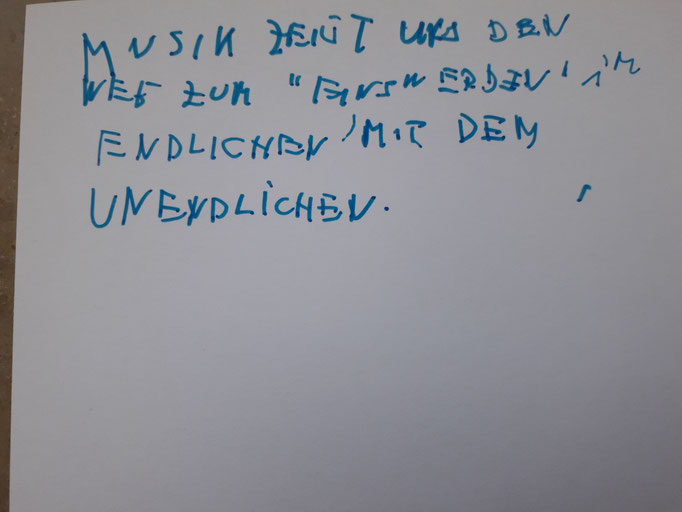 MUSIK ZEIGT UNS DEN
WEG ZUM "EINSWERDEN' IM
ENDLICHEN, MIT DEM
UNENDLICHEN.